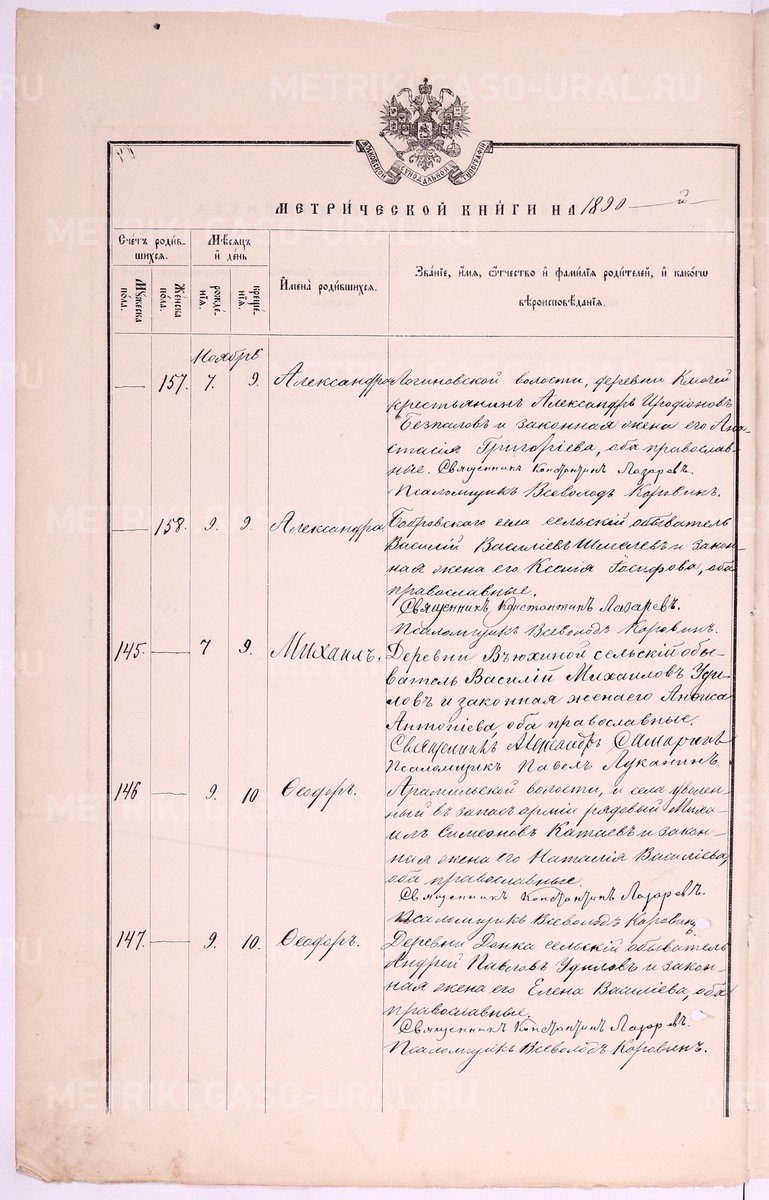 METRIKI.GASO-URAL.RU
МОСКОВСКОЙ СѴНОДАЛЬНОЙ ТИПОГРАФІИ
МЕТРИ́ЧЕСКОЙ КНИ́ГИ НА 1890 — й —
Сче́тъ роди́в-
шихся.
Му́жеска
по́ла.
Же́нска
по́ла.
Мѣ́сяцъ
и҆ де́нь
рожде́-
нїѧ.
креще́-
нїѧ.
И҆мена̀ роди́вшихся.
Зва́нїе, и҆́мѧ, ѻ҆́тчество и҆ фами́лїѧ роди́телей, и҆ како́гѡ
вѣроисповѣ́данїѧ.
Ноябрь
157. 7. 9. Александра Логиновской волости, деревни Ключей
крестьянинъ Александръ Иродіоновъ
Безпаловъ и законная жена его Ана-
стасія Григоріева, оба православ-
ные. Священникъ Константинъ Лазаревъ.
Псаломщикъ Всеволодъ Коровинъ.
158. 9. 9. Александра Бобровскаго села сельскій обыватель
Василій Василіевъ Шмелевъ и закон-
ная жена его Ксенія Іосифова, оба
православные.
Священникъ Константинъ Лазаревъ.
Псаломщикъ Всеволодъ Коровинъ.
145. 7 9. Михаилъ. Деревни Вьюхиной сельскій обы-
ватель Василій Михаиловъ Уди-
ловъ и законная жена его Анфиса
Антоніева, оба православные.
Священникъ Александръ
Псаломщикъ Павелъ Луканинъ.
146 9. 10 Ѳеодоръ. Арамильской волости, и села уволен-
ный въ запасъ арміи рядовый Миха-
илъ Симеоновъ Катаевъ и закон-
ная жена его Наталія Василіева,
оба православные.
Священникъ Константинъ Лазаревъ.
Псаломщикъ Всеволодъ Коровинъ
147. 9. 10. Ѳеодоръ. Деревни Донка сельскій обыватель
Андрей Павловъ Удиловъ и закон-
ная жена его Елена Василіева, оба
православные.
Священникъ Константинъ Лазаревъ.
Псаломщикъ Всеволодъ Коровинъ.